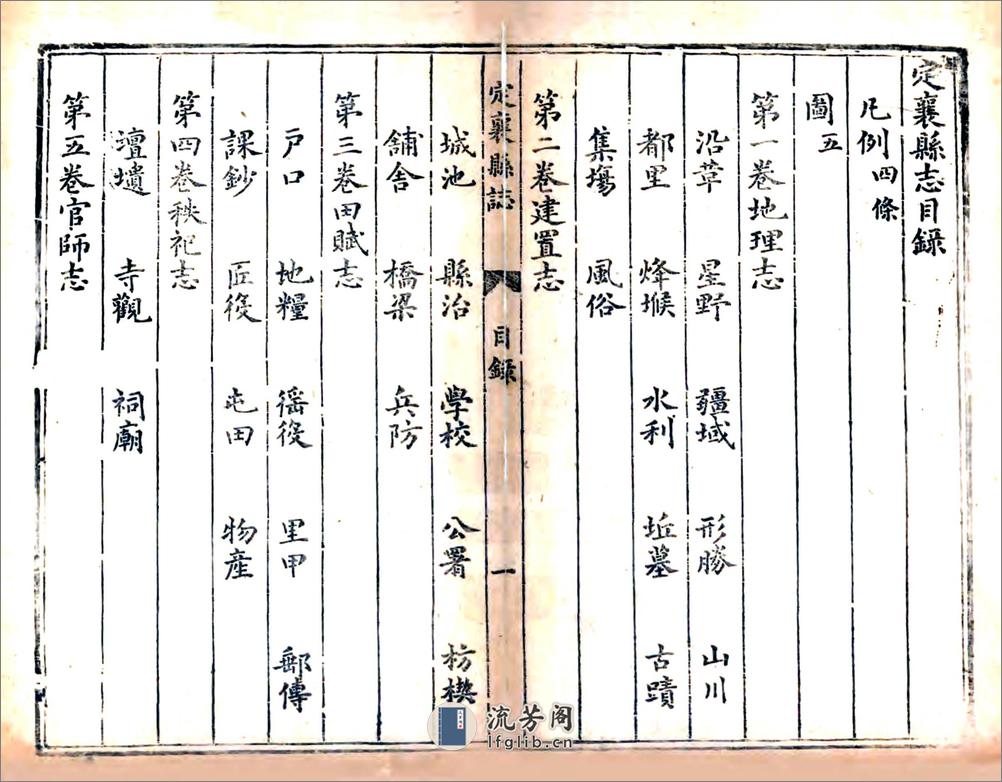 定襄縣志目錄
凡例四條
圖五
第一卷地理志
沿革 星野 疆域 形勝 山川
都里 烽堠 水利 坵墓 古蹟
集場 風俗
第二卷建置志
定襄縣誌 目錄 一
城池 縣治 學校 公署 枋楔
舖舍 橋梁 兵防
第三卷田賦志
戸口 地糧 徭役 里甲 郵傳
課鈔 匠役 屯田 物産
第四卷秩祀志
壇壝 寺觀 祠廟
第五卷官師志
流芳阁
lfglib.cn